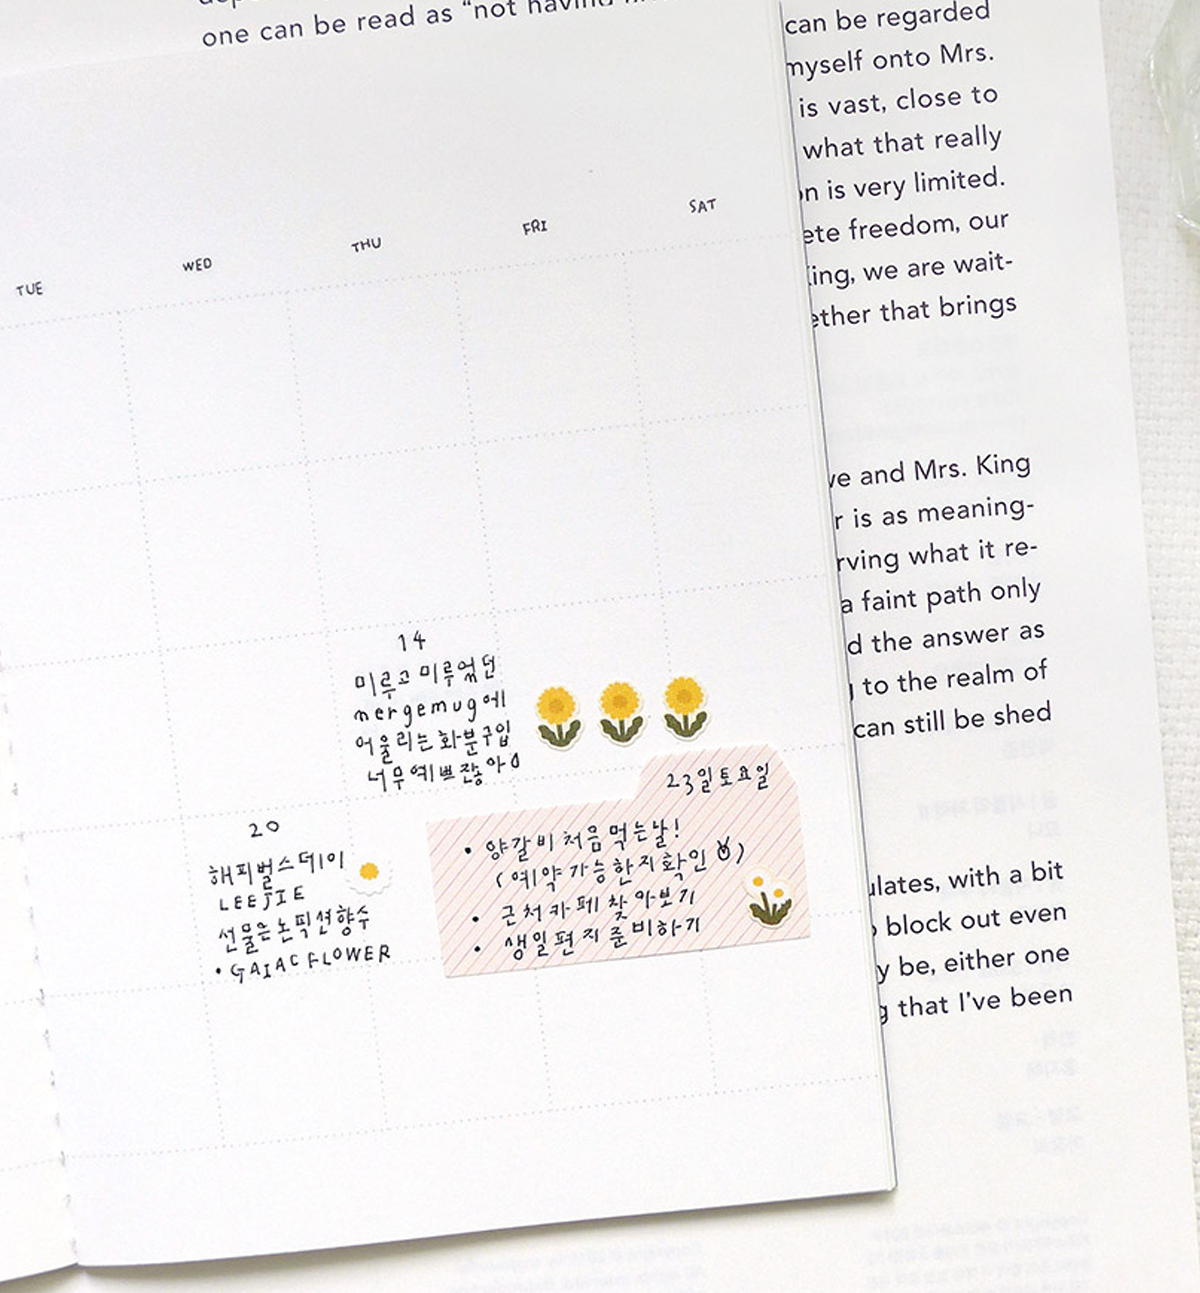 one can be read as “not having
can be regarded
myself onto Mrs.
is vast, close to
what that really
is very limited.
freedom, our
we are wait-
that brings
and Mrs. King
is as meaning-
what it re-
a faint path only
the answer as
to the realm of
can still be shed
with a bit
block out even
be, either one
that I’ve been
TUE
WED
THU
FRI
SAT
14
미루고 미루었던
mergemug에
어울리는 화분구입
너무예쁘잖아
23일토요일
• 양갈비 처음 먹는날!
(예약가능한지확인)
• 근처카페 찾아보기
• 생일편지준비하기
20
해피벌스데이
LEEJIE
선물은논픽션향수
• GAIAC FLOWER